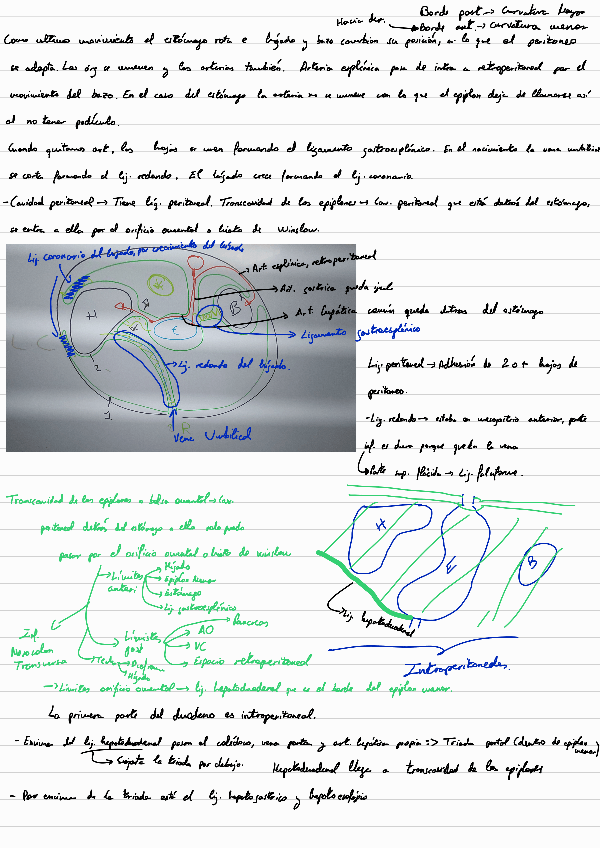 Hacia der.
Borde post → Curvatura Mayor
→ Borde ant → Curvatura menor
Como ultimo movimiento el estómago rota e hígado y bazo cambian su posición, a lo que el peritoneo
se adapta. Los org se mueven y las arterias también. Arteria esplénica pasa de intra a retroperitoneal por el
movimiento del bazo. En el caso del estómago la arteria no se mueve con lo que el epiplon deja de llamarse así
al no tener pedículo.
Cuando quitamos art, las hojas se unen formando el ligamento gastroesplénico. En el nacimiento la vena umbilical
se corta formando el lig. redondo. El hígado crece formando el lig. coronario.
- Cavidad peritoneal → Tiene líq. peritoneal. Transcavidad de los epiplones → Cav. peritoneal que está detrás del estómago,
se entra a ella por el orificio omental o hiato de Winslow.
Lig. coronario del hígado, por crecimiento del hígado
→ Art esplénica, retroperitoneal
Art. gástrica queda igual
H
B
E
Art. hepática común queda detras del estómago
→ Ligamento gastroesplénico
→ Lig. redondo del hígado.
Vena Umbilical
Lig. peritoneal → Adhesión de 2 o + hojas de
peritoneo.
- Lig. redondo → estaba en mesogastrio anterior, parte
inf. es dura porque queda la vena
→ Parte sup. flácida → Lig. falciforme.
Transcavidad de los epiplones o bolsa omental → Cav.
peritoneal detrás del estómago a ella solo puedo
pasar por el orificio omental o hiato de winslow
→ Límites anteri
→ Hígado
→ Epiplon menor
→ Estómago
→ Lig gastroesplénico
Inf
Mesocolon
Transverso
→ Límites post
→ Pancreas
→ AO
→ VC
→ Espacio retroperitoneal
→ Techo
→ Diafragma
→ Hígado
H
E
B
→ Lig. hepatoduodenal
Intraperitoneales.
→ Límites orificio omental → lig. hepatoduodenal que es el borde del epiplon menor.
La primera parte del duodeno es intraperitoneal.
- Encima del lig. hepatoduodenal pasan el colédoco, vena porta y art. hepática propia => Triada portal (dentro de epiplon menor)
→ Sujeta la triada por debajo.
Hepatoduodenal llega a transcavidad de los epiplones
- Por encima de la triada está el lig. hepatogástrico y hepatoesofágico